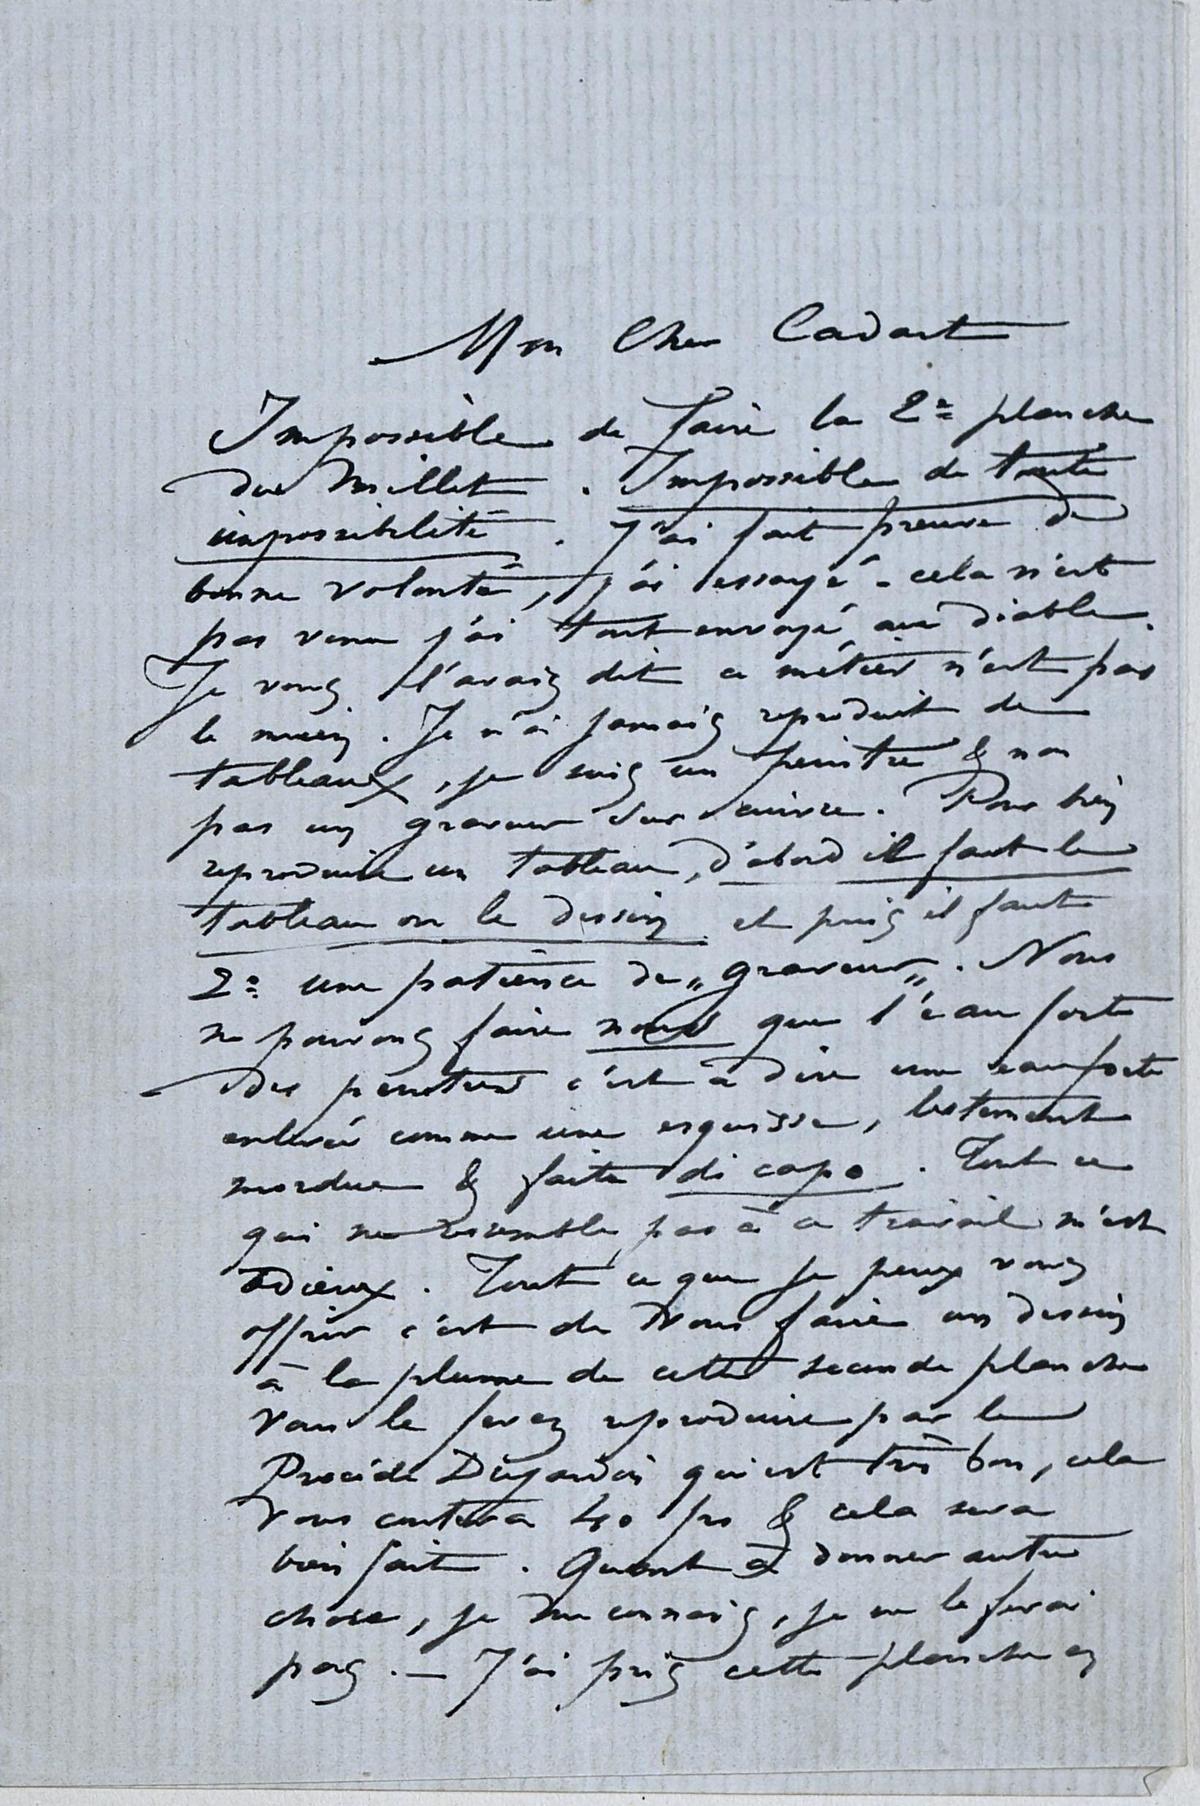 Mon Cher Cadart
Impossible de faire la 2e planche
du Millet. Impossible de toute
impossibilité. J'ai fait preuve de
bonne volonté, j'ai essayé - cela n'est
pas venu j'ai tout envoyé au diable.
Je vous l'avais dit ce métier n'est pas
le mien. Je n'ai jamais reproduit de
tableaux, je suis un peintre & non
pas un graveur sur cuivre. Pour bien
reproduire un tableau, d'abord il faut le
tableau ou le dessin et puis il faut
2o une patience de „graveur„. Nous
ne pouvons faire nous que l'eau forte
des peintres c'est à dire une eau forte
enlevée comme une esquisse, lestement
mordue & faite di capo. Tout ce
qui ne ressemble pas à ce travail m'est
odieux. Tout ce que je peux vous
offrir c'est de vous faire un dessin
à la plume de cette seconde planche
vous le ferez reproduire par le
Procédé Dujardin qui est très bon, cela
vous coutera 40 frs & cela sera
bien fait. Quant à donner autre
chose, je me connais, je ne le ferai
pas. — J'ai pris cette planche en